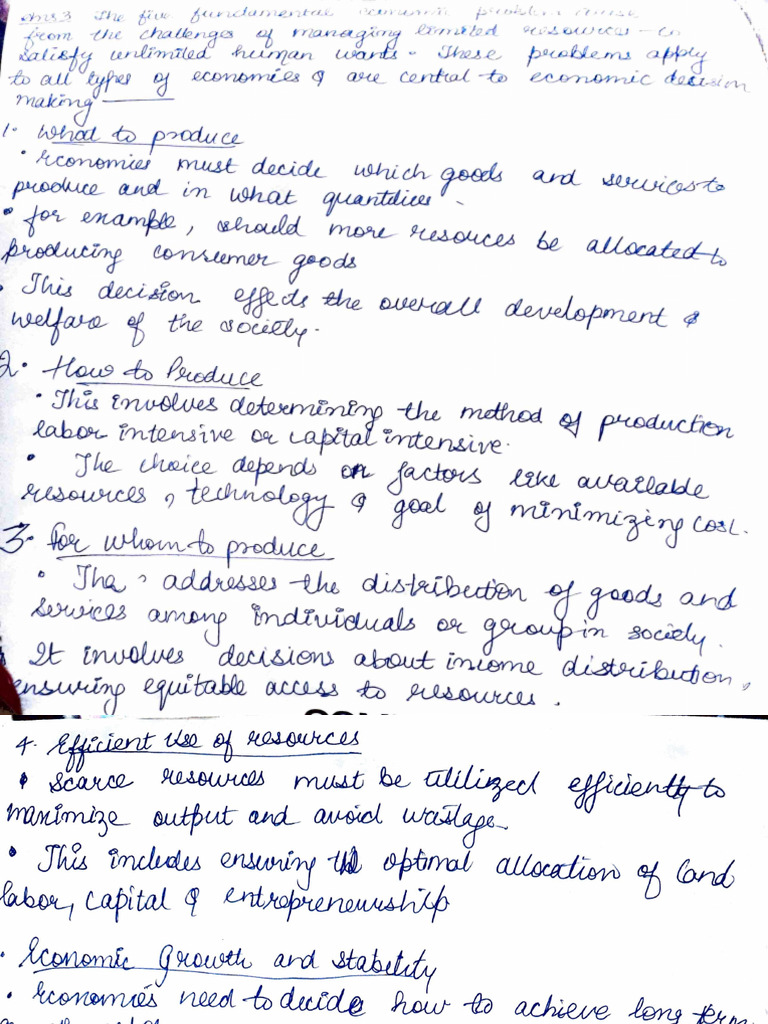 Ans3 The five fundamental economic problem arise
from the challenges of managing limited resources to
satisfy unlimited human wants. These problems apply
to all types of economies & are central to economic decision
making
1. What to produce
• Economies must decide which goods and services to
produce and in what quantities.
• for example, should more resouces be allocated to
producing consumer goods
• This decision effects the overall development &
welfare of the society.
2. How to Produce
• This involves determining the method of production
labor intensive or capital intensive.
• The choice depends on factors like available
resources, technology & goal of minimizing cost.
3. for whom to produce
• addresses the distribution of goods and
services among individuals or group in society.
It involves decisions about income distribution,
ensuring equitable access to resources.
4. Efficient Use of resources
• Scarce resources must be utilized efficiently to
maximize output and avoid wastage.
• This includes ensuring the optimal allocation of land
labor, capital & entrepreneurship
. Economic Growth and stability
• Economies need to decide how to achieve long term